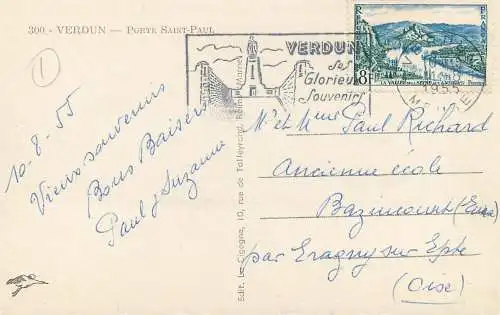 300. - VERDUN — PORTE SAINT-PAUL
1
VERDUN
Ses
Glorieux
Souvenirs
8F
LA VALLÉE DE LA SEINE AUX ANDELYS
1955
MEUSE
10-8-55
Vieux souvenirs
Bons Baisers
Paul & Suzanne
Edit. La Cigogne, 10, rue de Talleyrand, Reims (Marne)
Mr et Mme Paul Richard
Ancienne école
Bazincourt (Eure)
par Eragny sur Epte
(Oise)